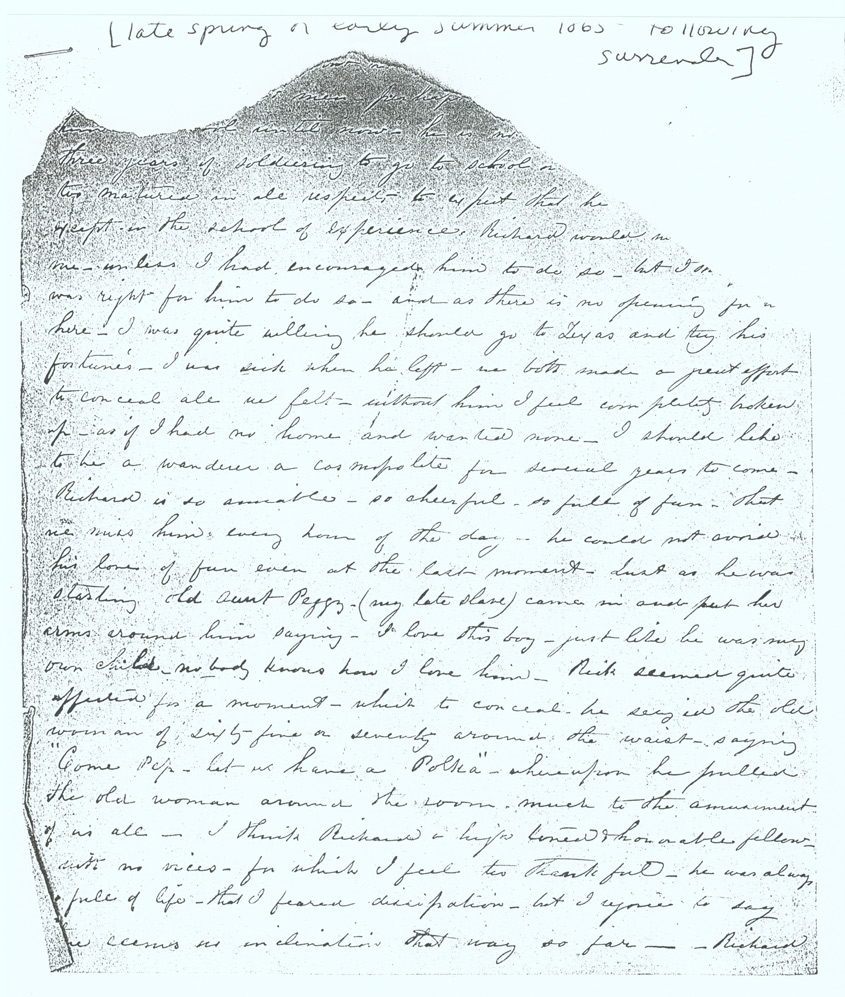 [late spring or early summer 1865 following
surrender]
men - perhaps
him until now - he is no
three years of soldiering to go to school or
too matured in all respects to expect that he
except in the school of experience. Richard would
me - unless I had encouraged him to do so - but I
was right for him to do so - and as there is no opening for a
here - I was quite willing he should go to Texas and try his
fortunes - I was sick when he left - we both made a great effort
to conceal all we felt - without him I feel completely broken
up - as if I had no home and wanted none - I should like
to be a wanderer a cosmopolite for several years to come -
Richard is so amiable - so cheerful - so full of fun - that
we miss him every hour of the day - he could not avoid
his love of fun even at the last moment - Just as he was
starting old aunt Peggy - (my late slave) came in and put her
arms around him saying - I love this boy - just like he was my
own child - nobody knows how I love him - Rich seemed quite
affected for a moment - which to conceal - he seized the old
woman of sixty five or seventy around the waist - saying
"Come Pep - let us have a Polka" - whereupon he pulled
the old woman around the room. much to the amusement
of us all - I think Richard a high toned & honorable fellow -
with no vices - for which I feel too thankful - he was always
full of life - that I feared dissipation - but I rejoice to say
he seems no inclination that way so far - - Richard